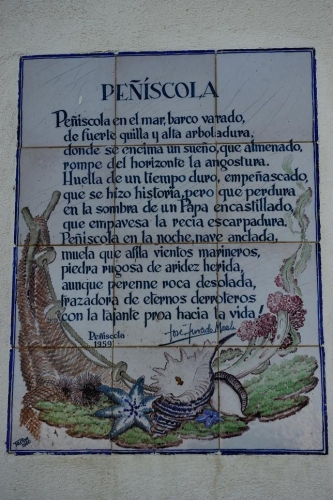 PEÑÍSCOLA
Peñíscola en el mar, barco varado,
de fuerte quilla y alta arboladura,
donde se encima un sueño, que almenado,
rompe del horizonte la angostura.
Huella de un tiempo duro, empeñascado,
que se hizo historia, pero que perdura
en la sombra de un Papa encastillado,
que empavesa la recia escarpadura.
Peñíscola en la noche, nave anclada,
muela que afila vientos marineros,
piedra rugosa de aridez herida,
aunque perenne roca desolada,
trazadora de eternos derroteros
con la tajante proa hacia la vida!
Peñíscola
1959
José